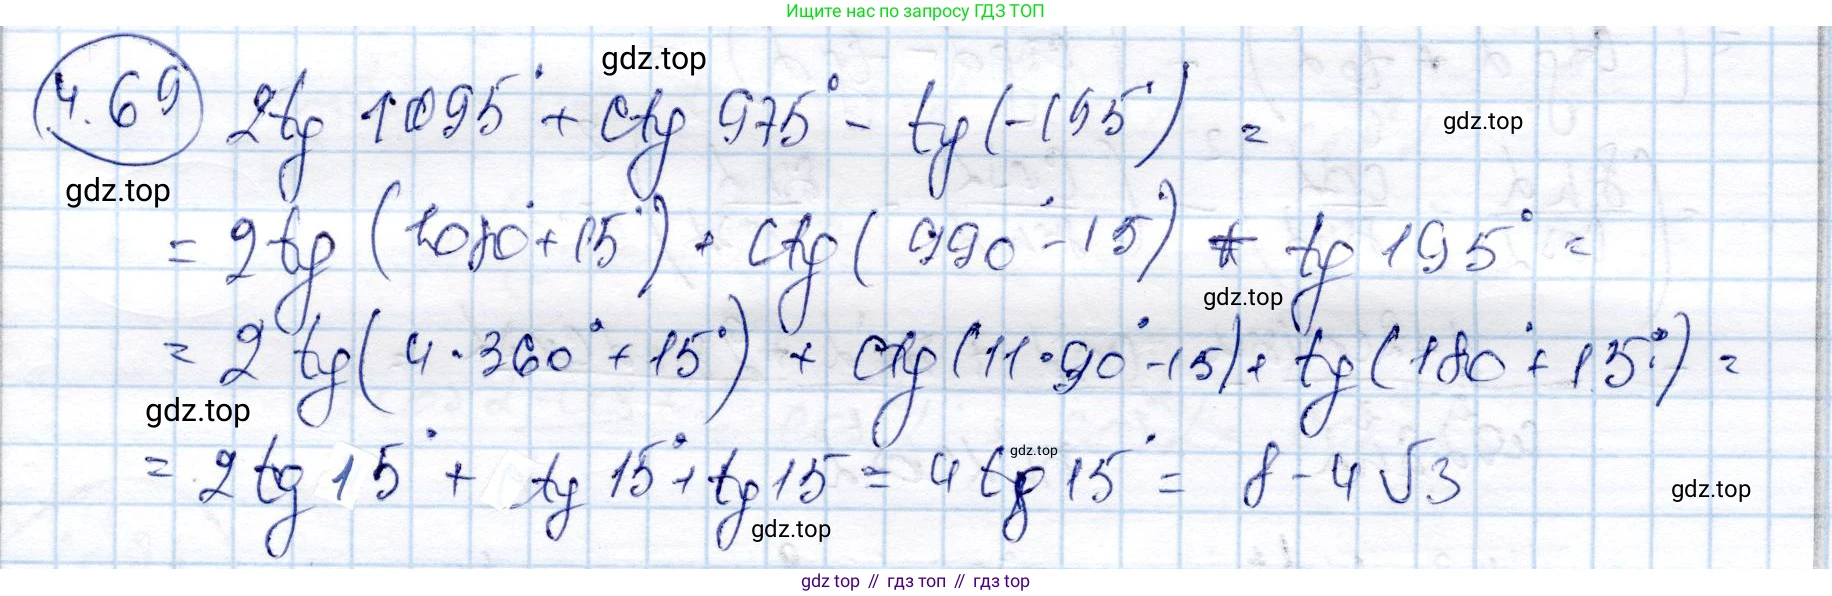 Ищите нас по запросу ГДЗ ТОП
4.69 2tg 1095° + ctg 975° - tg(-195°) =
= 2tg(1080° + 15°) + ctg(990° - 15°) + tg 195° =
= 2tg(4·360° + 15°) + ctg(11·90° - 15) + tg(180° + 15°) =
= 2tg 15° + tg 15° + tg 15 = 4tg 15° = 8 - 4√3
gdz.top
gdz.top
gdz.top
gdz.top
gdz.top
gdz.top
gdz.top
gdz.top
gdz top // гдз топ // gdz top